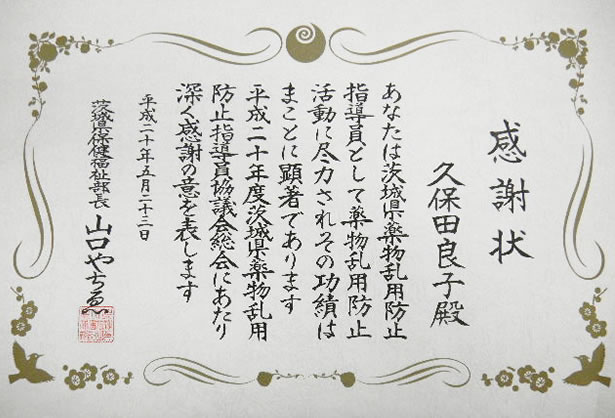 感謝状
久保田良子殿
あなたは茨城県薬物乱用防止
指導員として薬物乱用防止
活動に尽力されその功績は
まことに顕著であります
平成二十年度茨城県薬物乱用
防止指導員協議会総会にあたり
深く感謝の意を表します
平成二十年五月二十三日
茨城県保健福祉部長 山口やちゑ